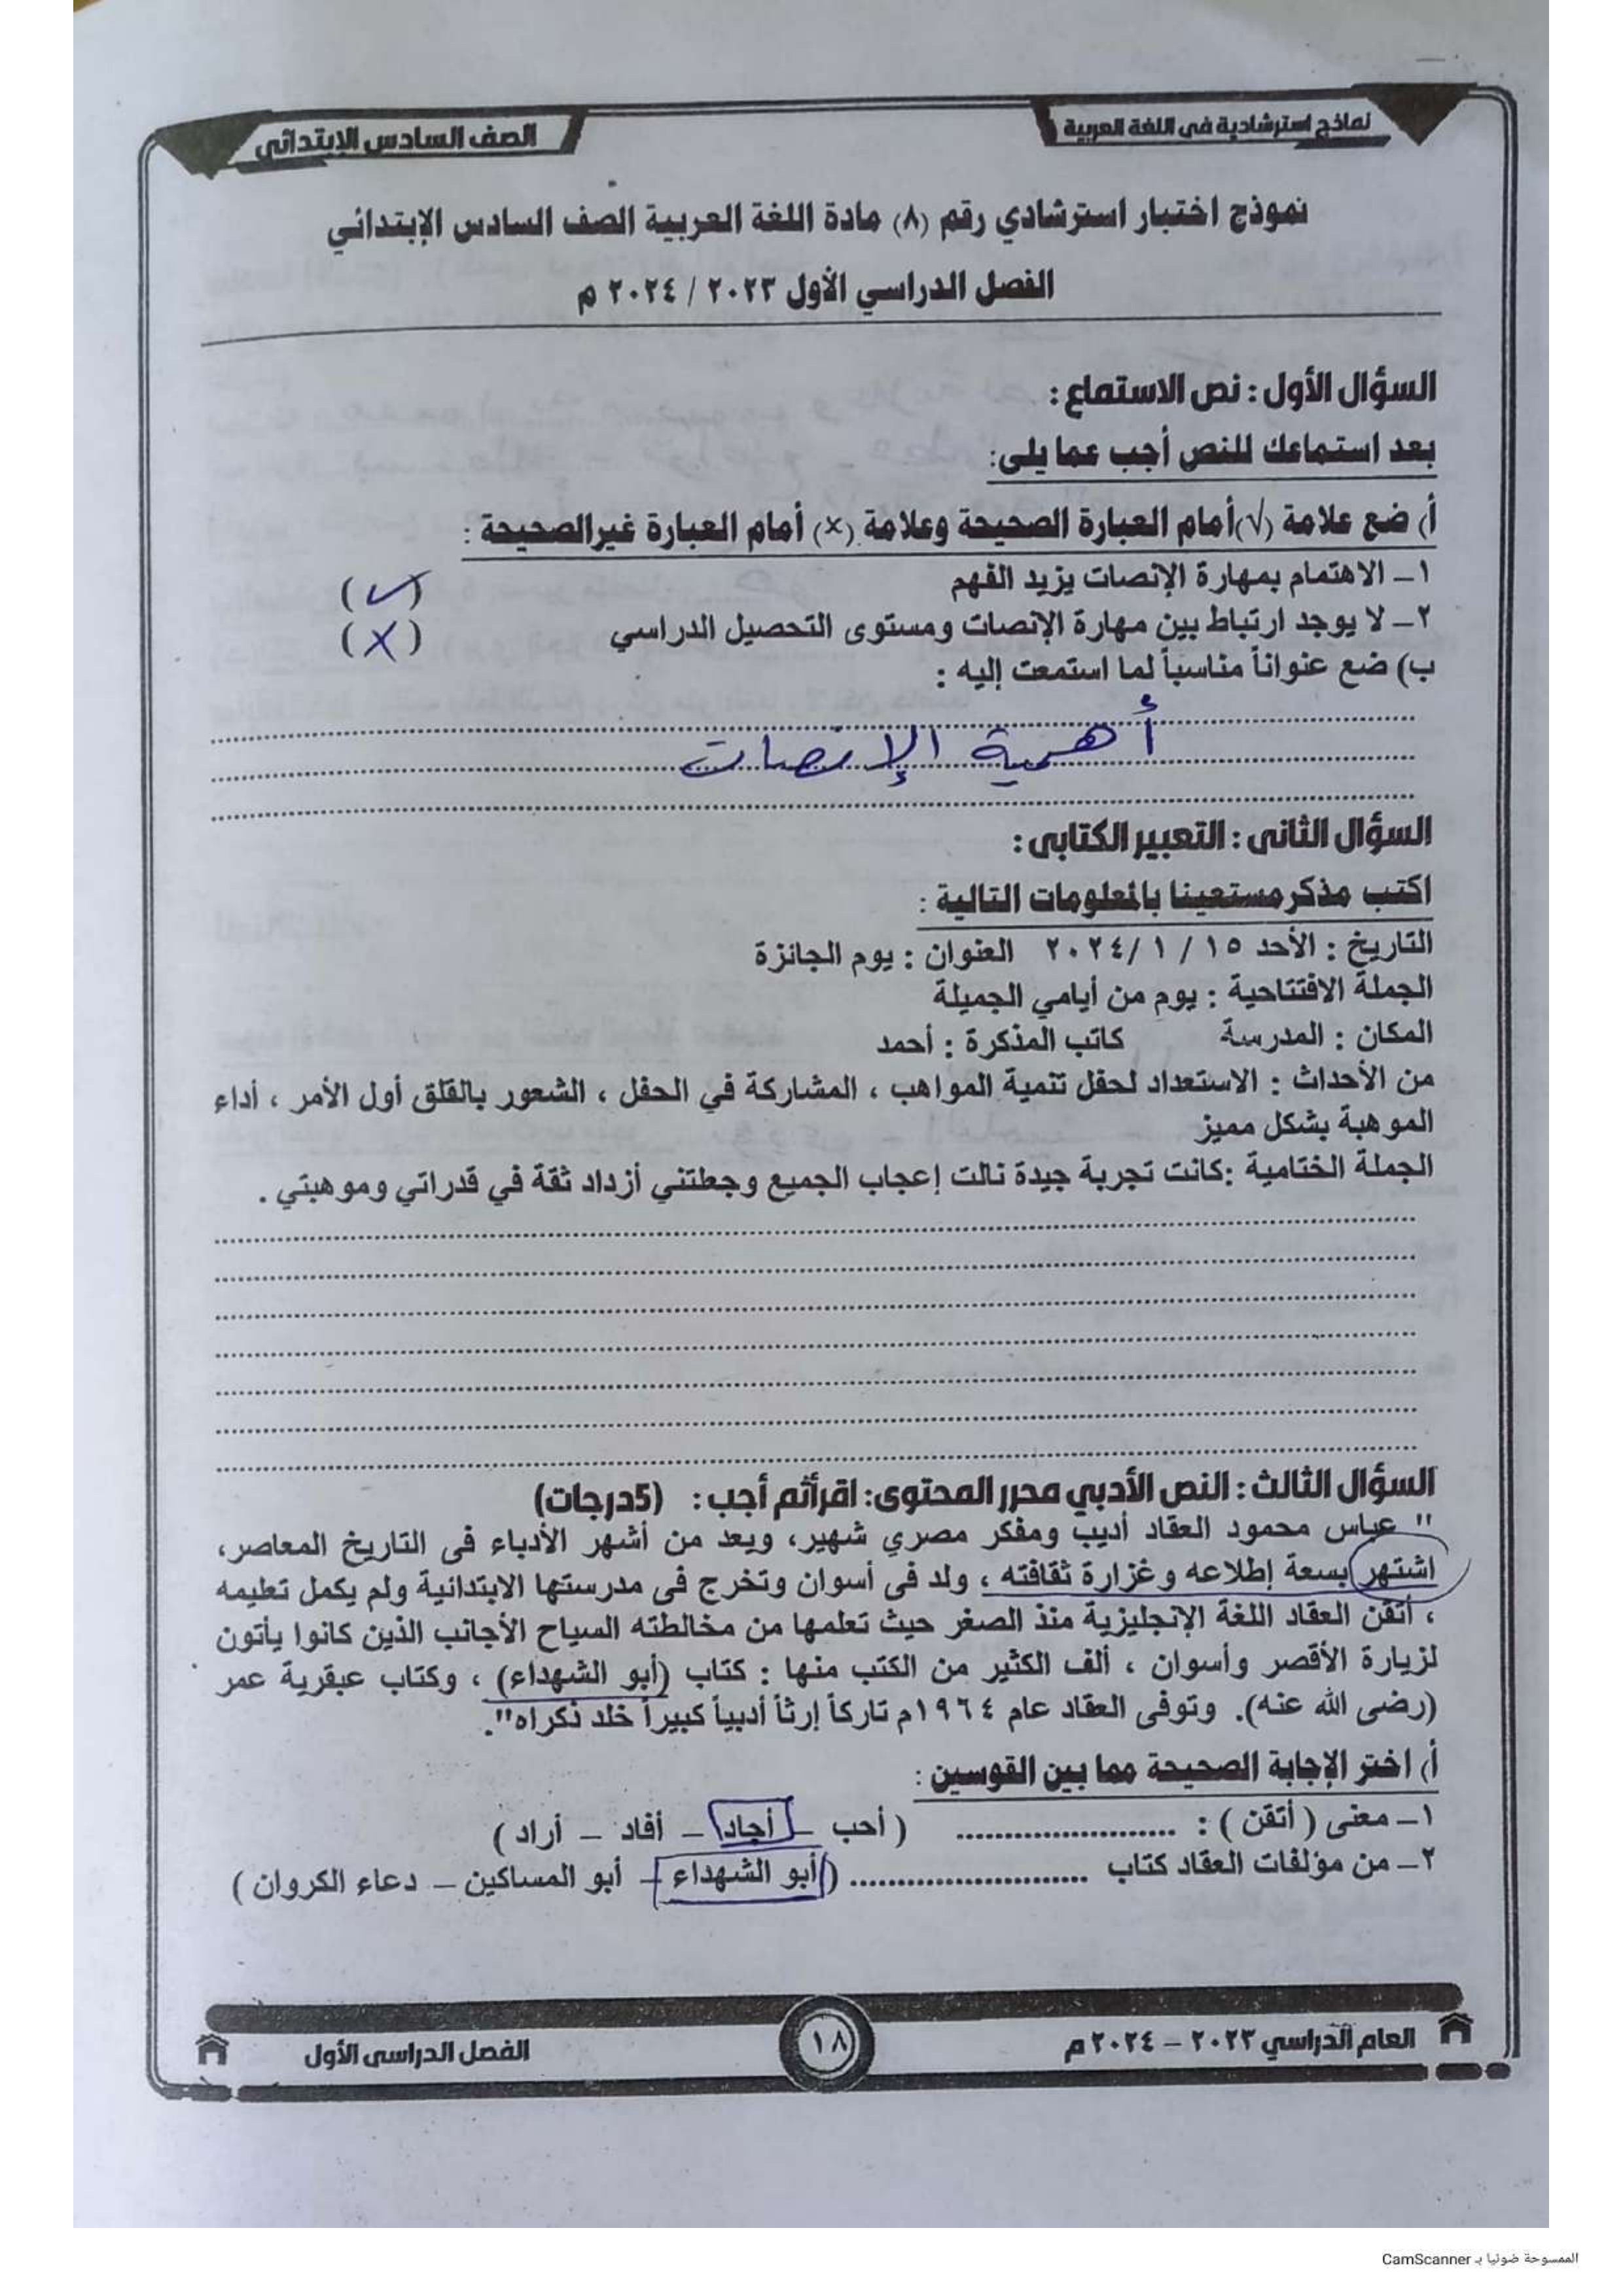 نماذج استرشادية فى اللغة العربية
الصف السادس الإبتدائى
نموذج اختبار استرشادي رقم (٨) مادة اللغة العربية الصف السادس الإبتدائي
الفصل الدراسي الأول ٢٠٢٣ / ٢٠٢٤ م
السؤال الأول : نص الاستماع :
بعد استماعك للنص أجب عما يلى:
أ) ضع علامة (√) أمام العبارة الصحيحة وعلامة (×) أمام العبارة غير الصحيحة :
١ــ الاهتمام بمهارة الإنصات يزيد الفهم (✓)
٢ــ لا يوجد ارتباط بين مهارة الإنصات ومستوى التحصيل الدراسي (X)
ب) ضع عنواناً مناسباً لما استمعت إليه :
أهمية الإنصات
السؤال الثانى : التعبير الكتابى :
اكتب مذكر مستعينا بالمعلومات التالية :
التاريخ : الأحد ١٥ / ١ /٢٠٢٤ العنوان : يوم الجائزة
الجملة الافتتاحية : يوم من أيامي الجميلة
المكان : المدرسة كاتب المذكرة : أحمد
من الأحداث : الاستعداد لحفل تنمية المواهب ، المشاركة في الحفل ، الشعور بالقلق أول الأمر ، أداء
الموهبة بشكل مميز
الجملة الختامية :كانت تجربة جيدة نالت إعجاب الجميع وجعلتني أزداد ثقة في قدراتي وموهبتي .
السؤال الثالث : النص الأدبي محرر المحتوى: اقرأ ثم أجب : (5درجات)
" عباس محمود العقاد أديب ومفكر مصري شهير، ويعد من أشهر الأدباء فى التاريخ المعاصر،
اشتهر بسعة إطلاعه وغزارة ثقافته ، ولد فى أسوان وتخرج فى مدرستها الابتدائية ولم يكمل تعليمه
، أتقن العقاد اللغة الإنجليزية منذ الصغر حيث تعلمها من مخالطته السياح الأجانب الذين كانوا يأتون
لزيارة الأقصر وأسوان ، ألف الكثير من الكتب منها : كتاب (أبو الشهداء) ، وكتاب عبقرية عمر
(رضى الله عنه). وتوفى العقاد عام ١٩٦٤م تاركاً إرثاً أدبياً كبيراً خلد ذكراه".
أ) اختر الإجابة الصحيحة مما بين القوسين :
١ــ معنى ( أتقن ) : ........................ ( أحب – أجاد – أفاد – أراد )
٢ــ من مؤلفات العقاد كتاب ........................ (أبو الشهداء – أبو المساكين – دعاء الكروان )
العام الدراسي ٢٠٢٣ – ٢٠٢٤ م
١٨
الفصل الدراسى الأول
الممسوحة ضوئيا بـ CamScanner